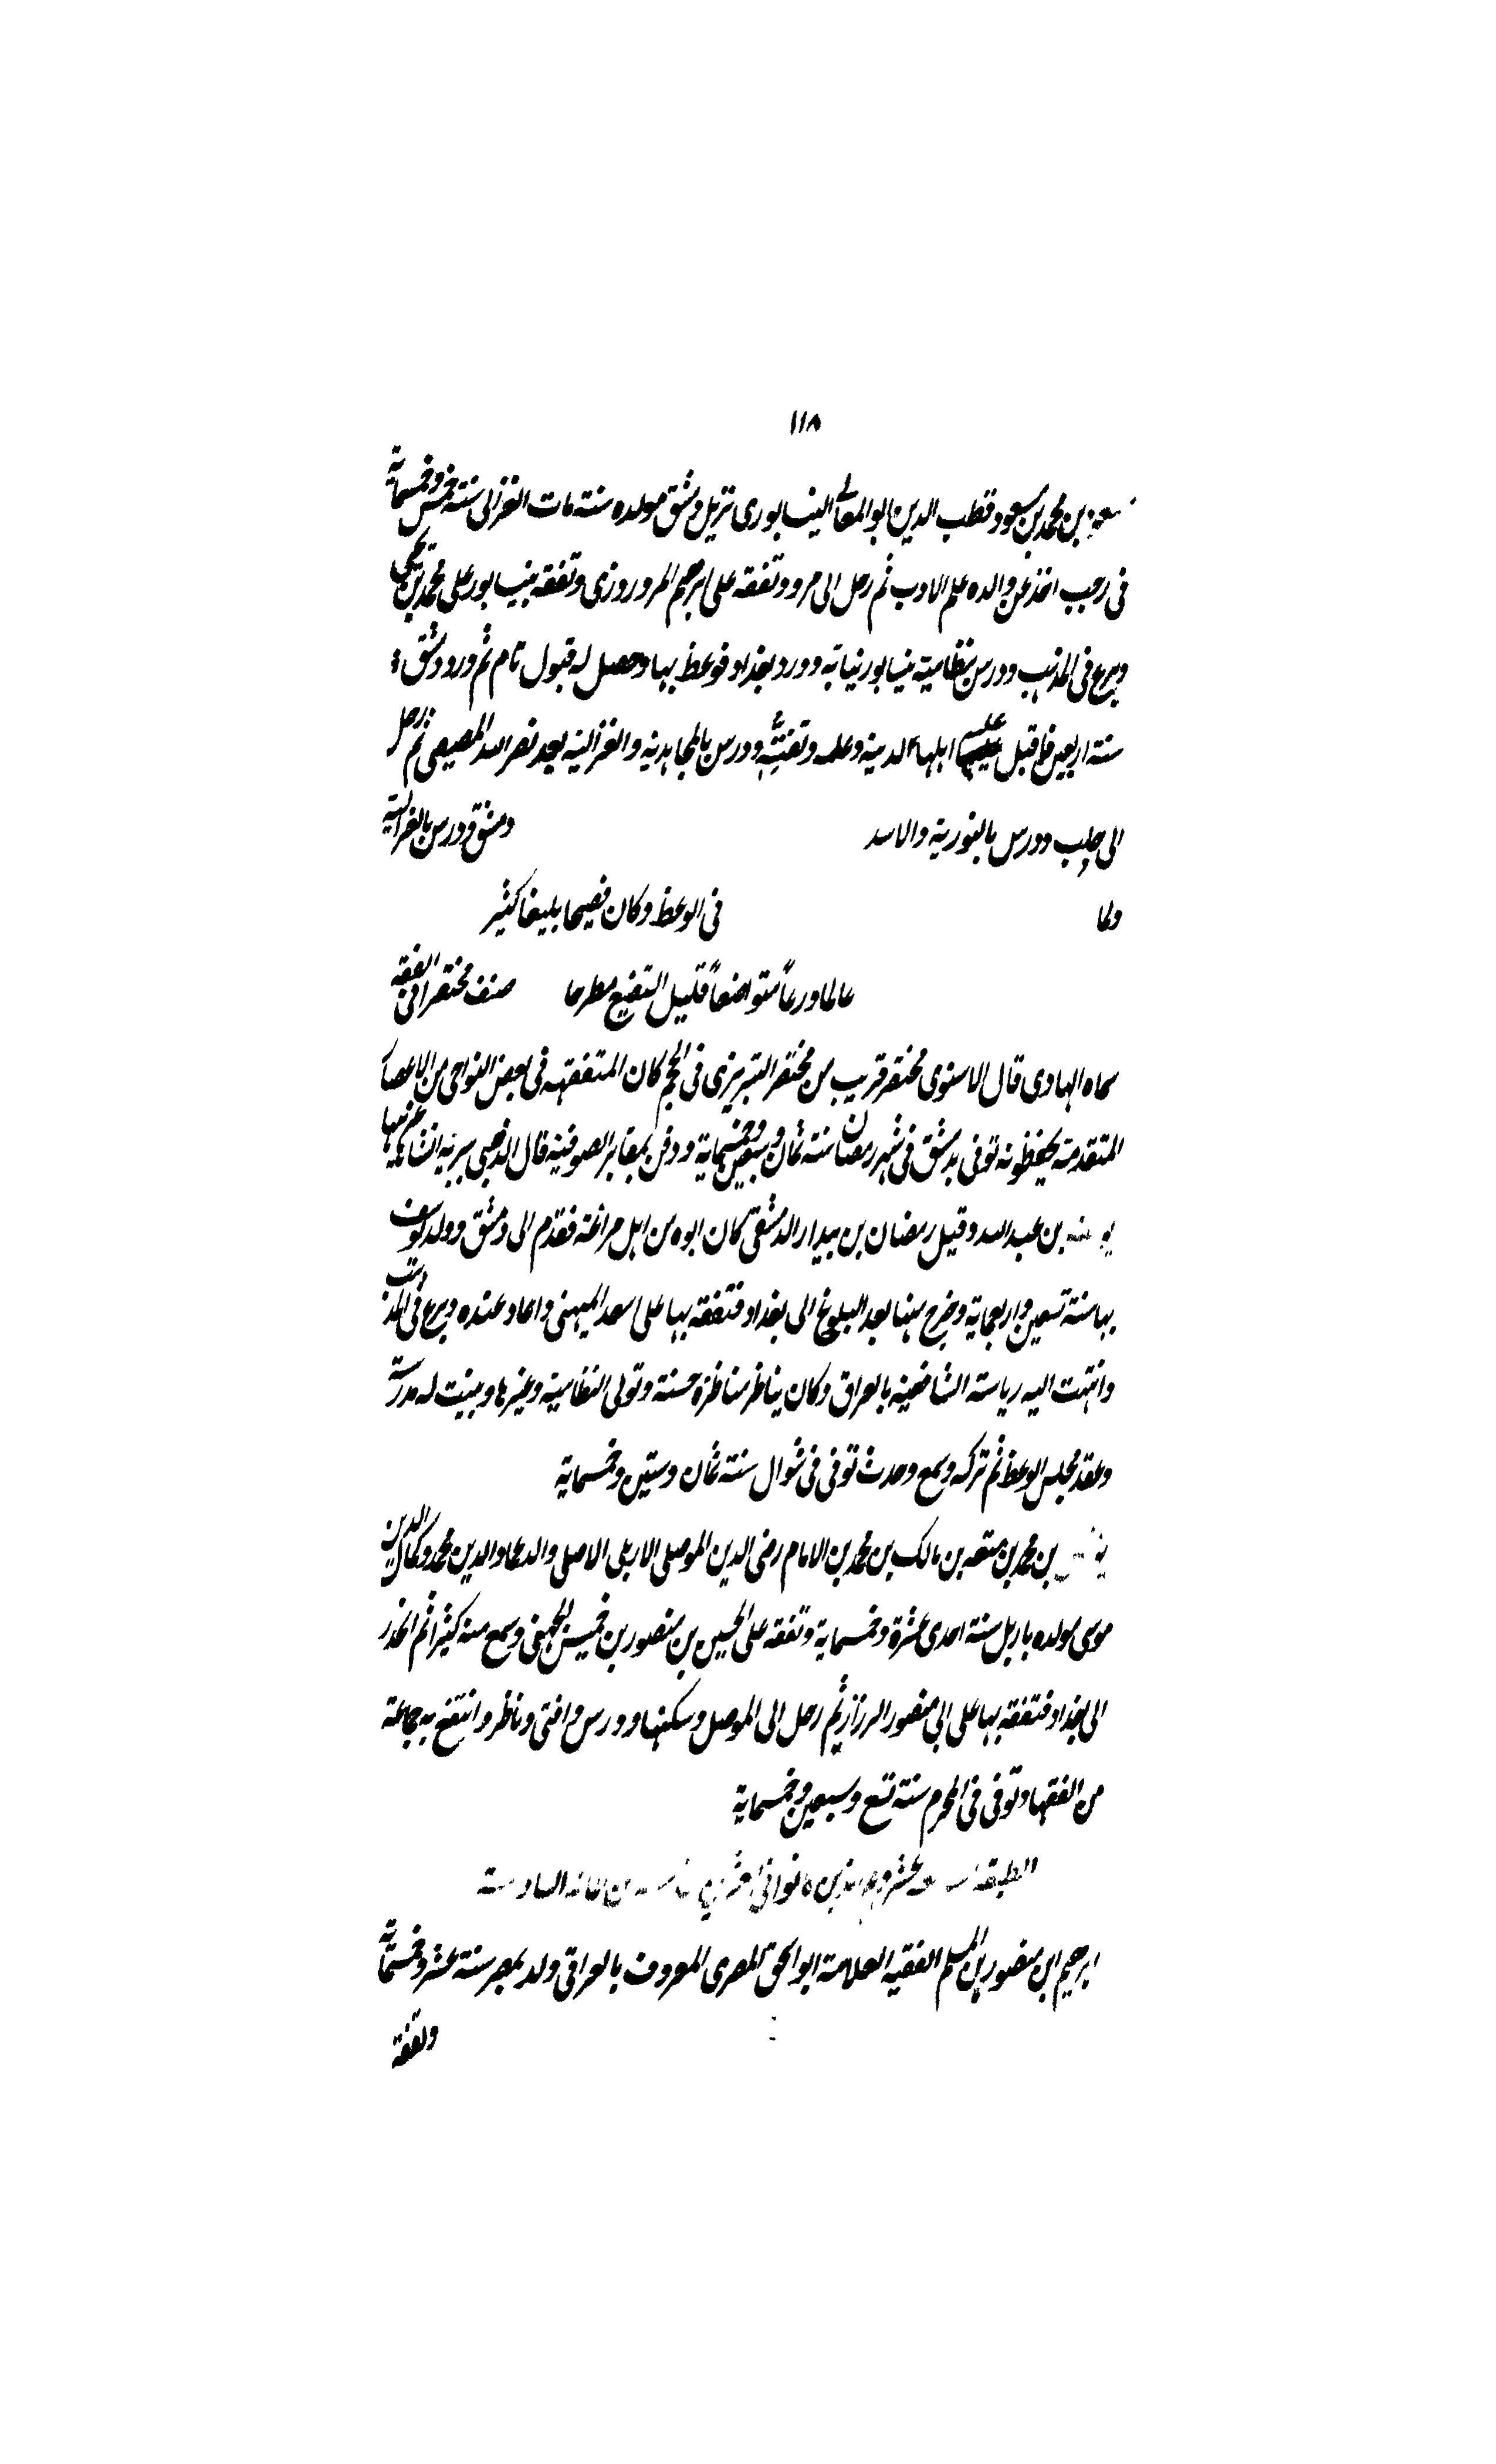 ١١٨
بن محمد بن مسعود قطب الدين ابو المعالي النيسابوري نزيل دمشق مولده سنة مات الغزالي سنة خمس وخمسماية
في رجب اخذ عن والده علم الادب ثم رحل الى مرو وتفقه على ابرهيم المروروزي وتفقه بنيسابور على محمد بن يحيى
وبرع في المذهب ودرس بنظامية نيسابور نيابة وورد بغداد فوعظ بها وحصل له قبول تام ثم ورد دمشق
سنة اربعين فاقبل عليه اهلها لدينه وعلمه وتفننه ودرس بالمجاهدية والغزالية بعد نصر الله المصيصي ثم رحل
الى حلب ودرس بالنورية والاسد دمشق ودرس بالغزالية
ولما في الوعظ وكان فصيحا بليغا كثير
عالما ورعاً متواضعاً قليل التصنع مطرحا صنف مختصرا في الفقه
سماه الهادي قال الاسنوي مختصر قريب من مختصر التبريزي في الحجم كان المتفقهه في بعض النواحي من الاعصار
المتقدمة يحفظونه توفي بدمشق في شهر رمضان سنة ثمان وسبعين وخمسماية ودفن بمقابر الصوفية قال الذهبي بتربة انشاها غربيها
بن عبد الله وقيل رمضان بن بندار الدمشقي كان ابوه من اهل مراغة فقدم الى دمشق وولد يوسف
بها سنة تسعين واربعماية وخرج منها بعد البلوغ الى بغداد فتفقه بها على اسعد الميهني واعاد عنده وبرع في المذهب
وانتهت اليه رياسة الشافعية بالعراق وكان يناظر مناظرة حسنة وتولى النظامية وغيرها وبنيت له مدرسة
وعقد مجلس الوعظ ثم تركه وسمع وحدث توفي في شوال سنة ثمان وستين وخمسماية
بن محمد بن منعه بن مالك بن محمد بن الامام رضى الدين الموصلي الاربلي الاصل والد عماد الدين محمد وكمال الدين
موسى مولده باربل سنة احدى عشرة وخمسماية وتفقه على الحسين بن منصور بن خميس الجهني وسمع منه كثيرا ثم انحدر
الى بغداد فتفقه بها على ابي منصور الرزاز ثم رحل الى الموصل وسكنها ودرس وافتى وناظر وانتفع به جماعة
من الفقها وتوفي في المحرم سنة تسع وسبعين وخمسماية
الطبقة السادسة
ابرهيم ابن منصور بن المسلم الفقيه العلامة ابو اسحق المصري المعروف بالعراقي ولد بمصر سنة عشر وخمسماية
وتفقه